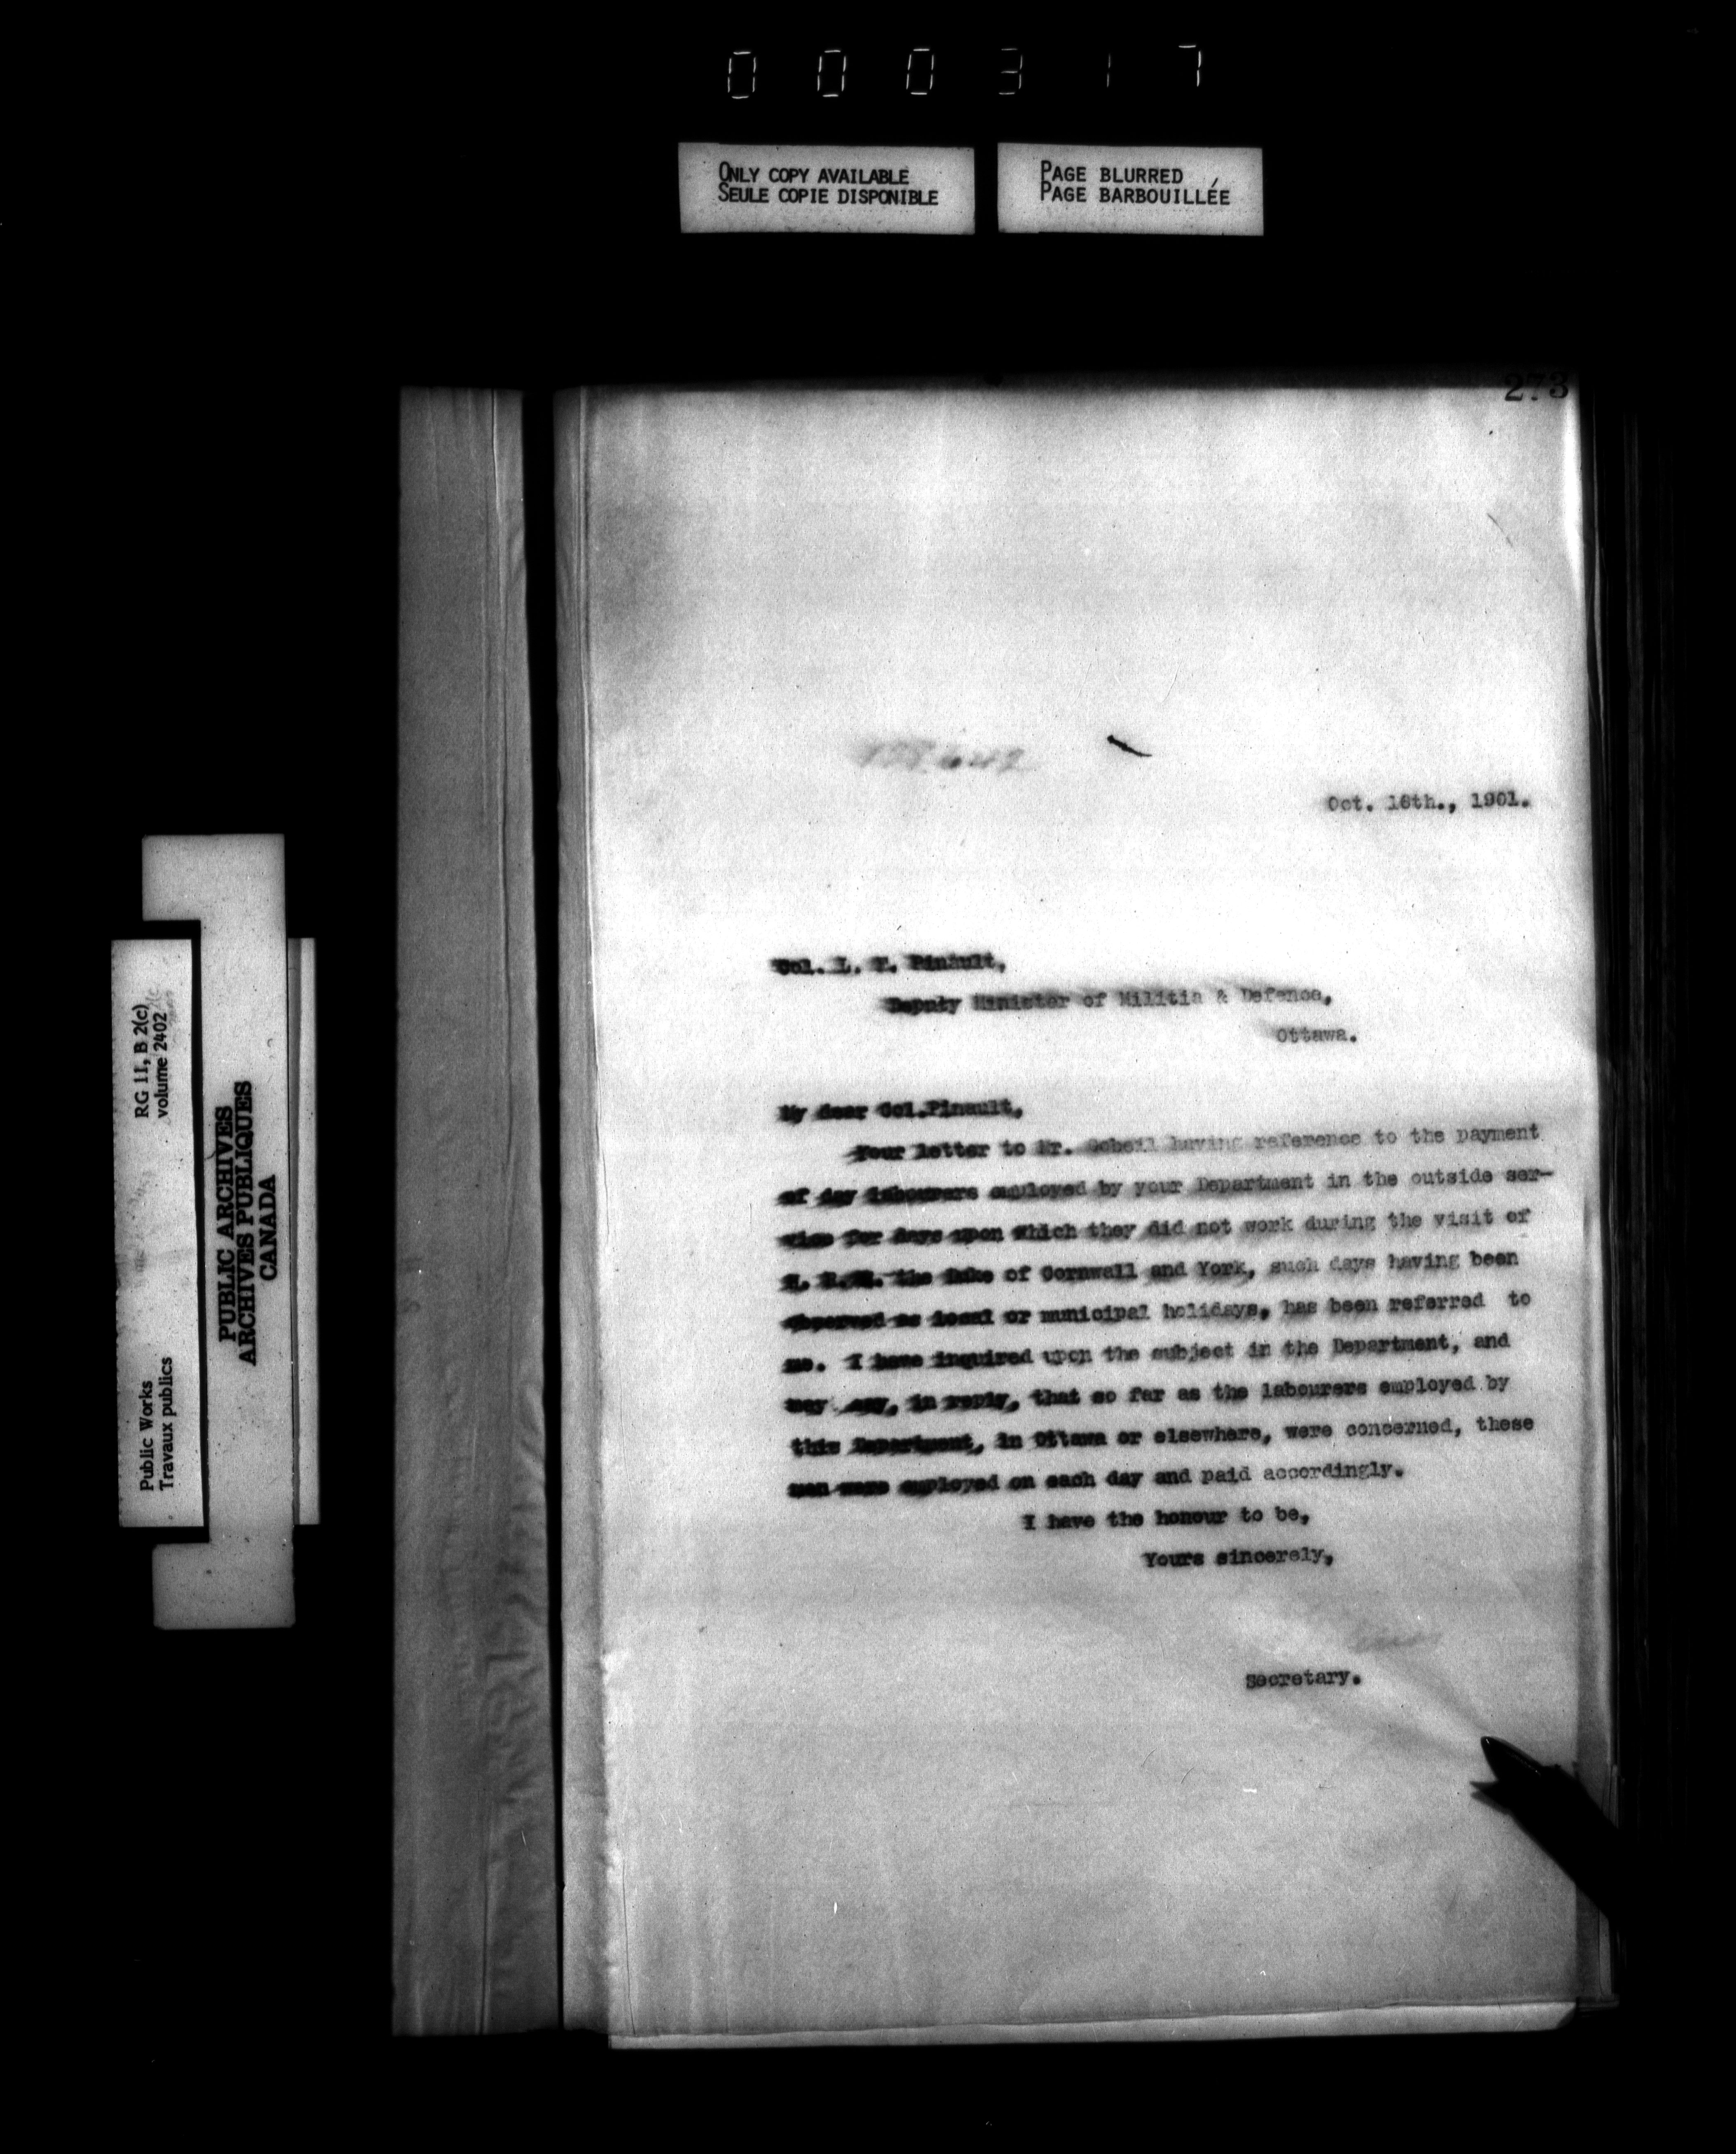 000317
ONLY COPY AVAILABLE
SEULE COPIE DISPONIBLE
PAGE BLURRED
PAGE BARBOUILLÉE
RG 11, B 2(c)
volume 2402
PUBLIC ARCHIVES
ARCHIVES PUBLIQUES
CANADA
Public Works
Travaux publics
273
Oct. 16th., 1901.
Col. L. F. Pinault,
Deputy Minister of Militia & Defence,
Ottawa.
My dear Col.Pinault,
Your letter to Mr. Gobeil having reference to the payment
of day labourers employed by your Department in the outside ser-
vice for days upon which they did not work during the visit of
H. R.H. the Duke of Cornwall and York, such days having been
observed as local or municipal holidays, has been referred to
me. I have inquired upon the subject in the Department, and
may say, in reply, that so far as the labourers employed by
this Department, in Ottawa or elsewhere, were concerned, these
men were employed on each day and paid accordingly.
I have the honour to be,
Yours sincerely,
Secretary.